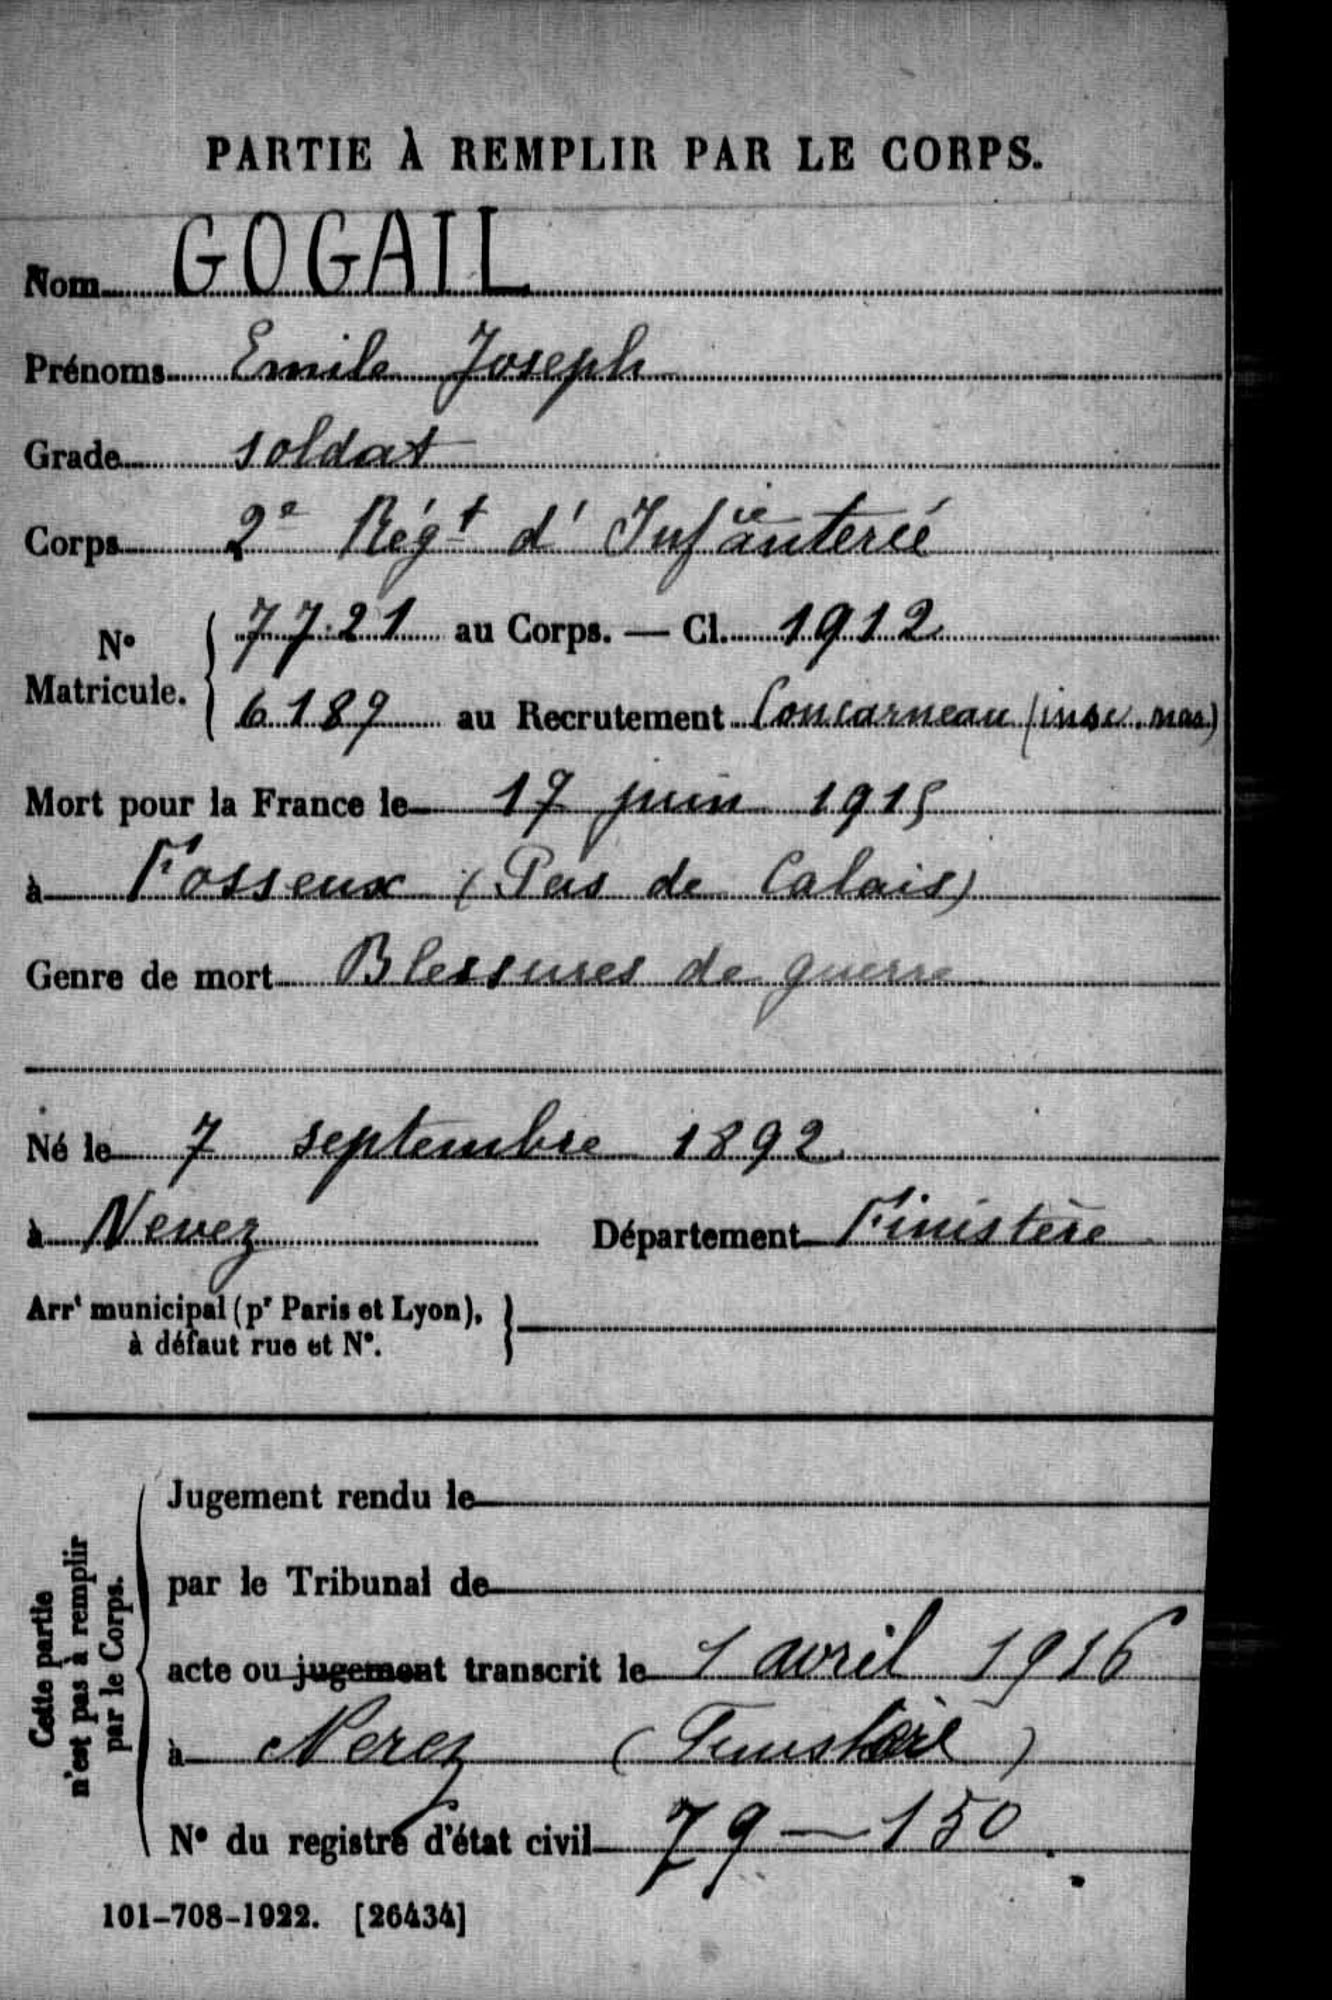 PARTIE À REMPLIR PAR LE CORPS.
Nom GOGAIL
Prénoms Emile Joseph
Grade soldat
Corps 2e Régt d' Infanterie
N° Matricule. 7721 au Corps. — Cl. 1912
6189 au Recrutement Concarneau (insc. mar.)
Mort pour la France le 17 juin 1915
à Fosseux (Pas de Calais)
Genre de mort Blessures de guerre
Né le 7 septembre 1892
à Nevez Département Finistère
Arrt municipal (pr Paris et Lyon),
à défaut rue et N°.
Cette partie
n'est pas à remplir
par le Corps.
Jugement rendu le
par le Tribunal de
acte ou jugement transcrit le 1 avril 1916
à Nevez (Finistère)
N° du registre d'état civil 79—150
101-708-1922. [26434]